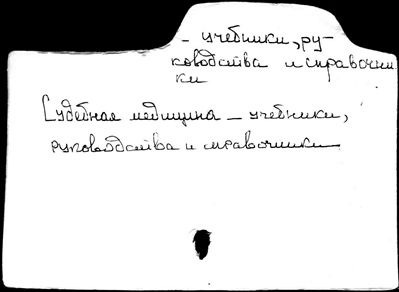 – учебники, ру-
ководства и справочни
ки
Судебная медицина – учебники,
руководства и справочники